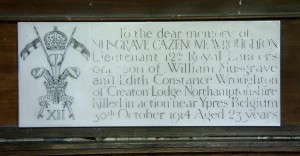 To the dear memory of
MUSGRAVE CAZENOVE WROUGHTON
Lieutenant 12th Royal Lancers
only son of William Musgrave
and Edith Constance Wroughton
of Creaton Lodge Northamptonshire
Killed in action near Ypres Belgium
30th October 1914 Aged 23 years
XII